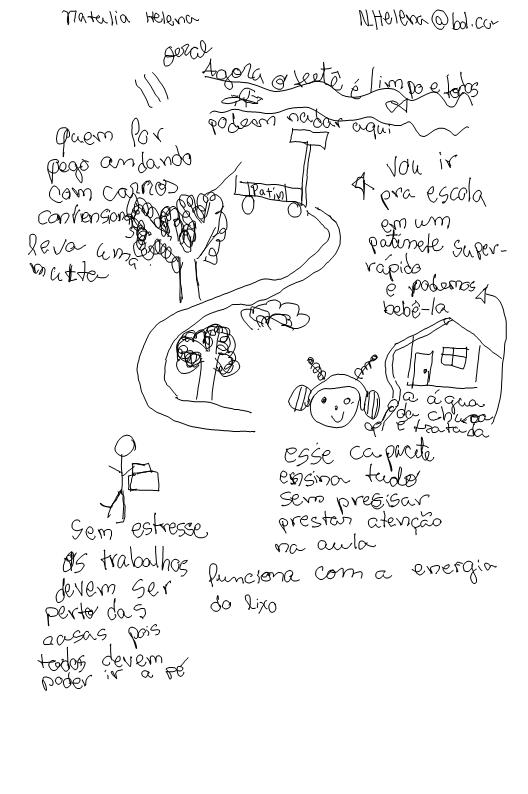 Natulia Helena
N.Helena@bol.co
geral
Agora o teetê é limpo e todos
podem nadar aqui
quem for
pego andando
com carros
leva uma
multa
Patin
Vou ir
pra escola
em um
patinete super-
rápido
e podemos
bebê-la
a água
da chuva
é tratada
esse capacete
ensina tudo
sem presisar
prestar atenção
na aula
funciona com a energia
do lixo
Sem estresse
Os trabalhos
devem ser
perto das
casas pois
todos devem
poder ir a pé